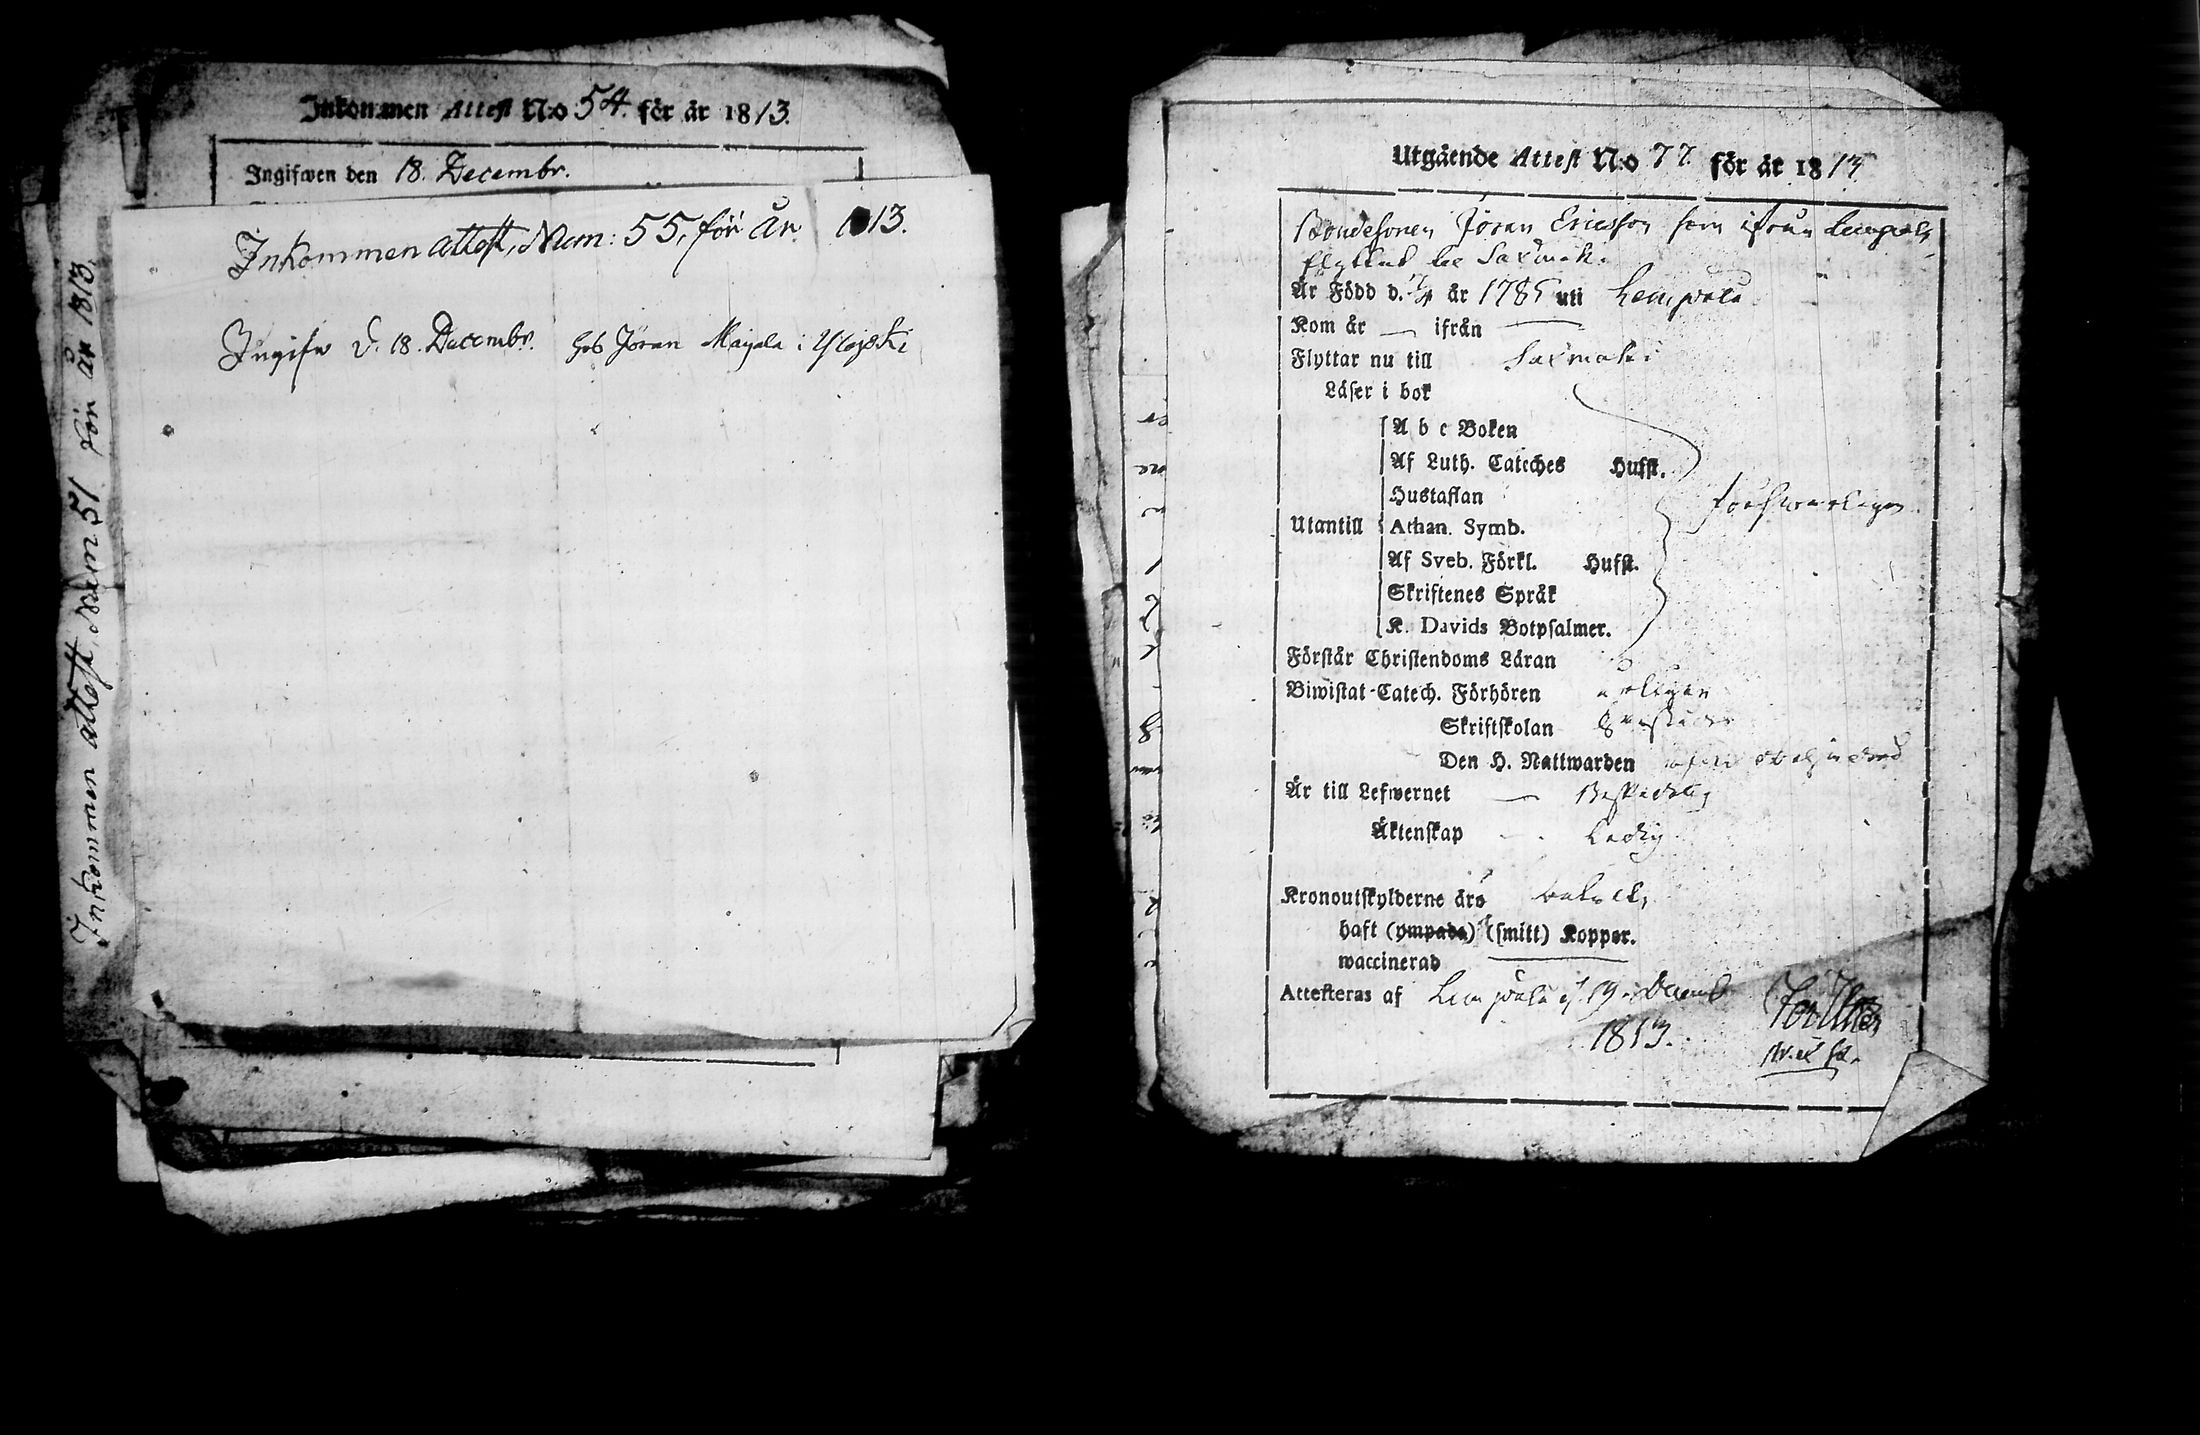 Inkommen Attest No 54. för år 1813.
Ingifwen den 18. Decembr.
Inkommen attest, Num: 55, för År 1813.
Ingifw d. 18. Decembr. hos Jöran Maijala i Ylöjäski
Inkommen attest, Num 51 för år 1813.
Utgående Attest No 77. för år 1813
Bondesonen Jöran Ericsson som ifrån Lempäla
flyttat til Saxmaki.
Är Född d. år 1785 uti Lempäla
Kom år — ifrån —
Flyttar nu till Saxmaki
Läser i bok
A b c Boken
Af Luth. Cateches Hufst.
Hustaflan
Utantill Athan. Symb.
Af Sveb. Förkl. Hufst.
Skriftenes Språk
K. Davids Botpsalmer.
försvarligen
Förstår Christendoms Läran
Biwistat Catech. Förhören årligen
Skriftskolan
Den H. Nattwarden
Är till Lefwernet — Beskedelig
Äktenskap — Ledig
Kronoutskylderne äro betalte,
haft (ympade) (smitt) Koppor.
waccinerad —
Attesteras af Lempäla d. 19. Decemb
1813.